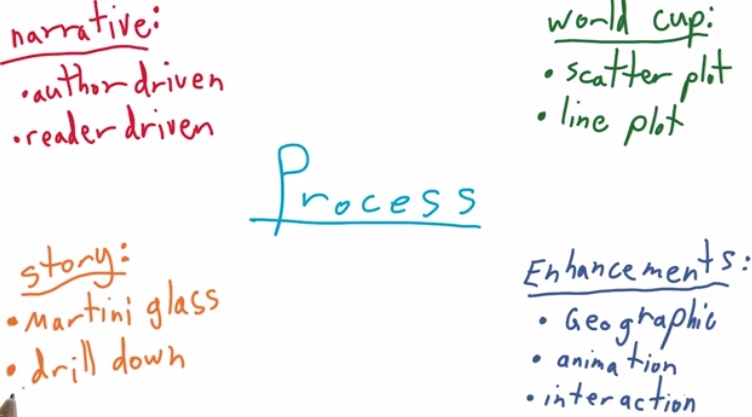 narrative:
• author driven
• reader driven
world cup:
• scatter plot
• line plot
Process
story:
• Martini glass
• drill down
Enhancements:
• Geographic
• animation
• interaction